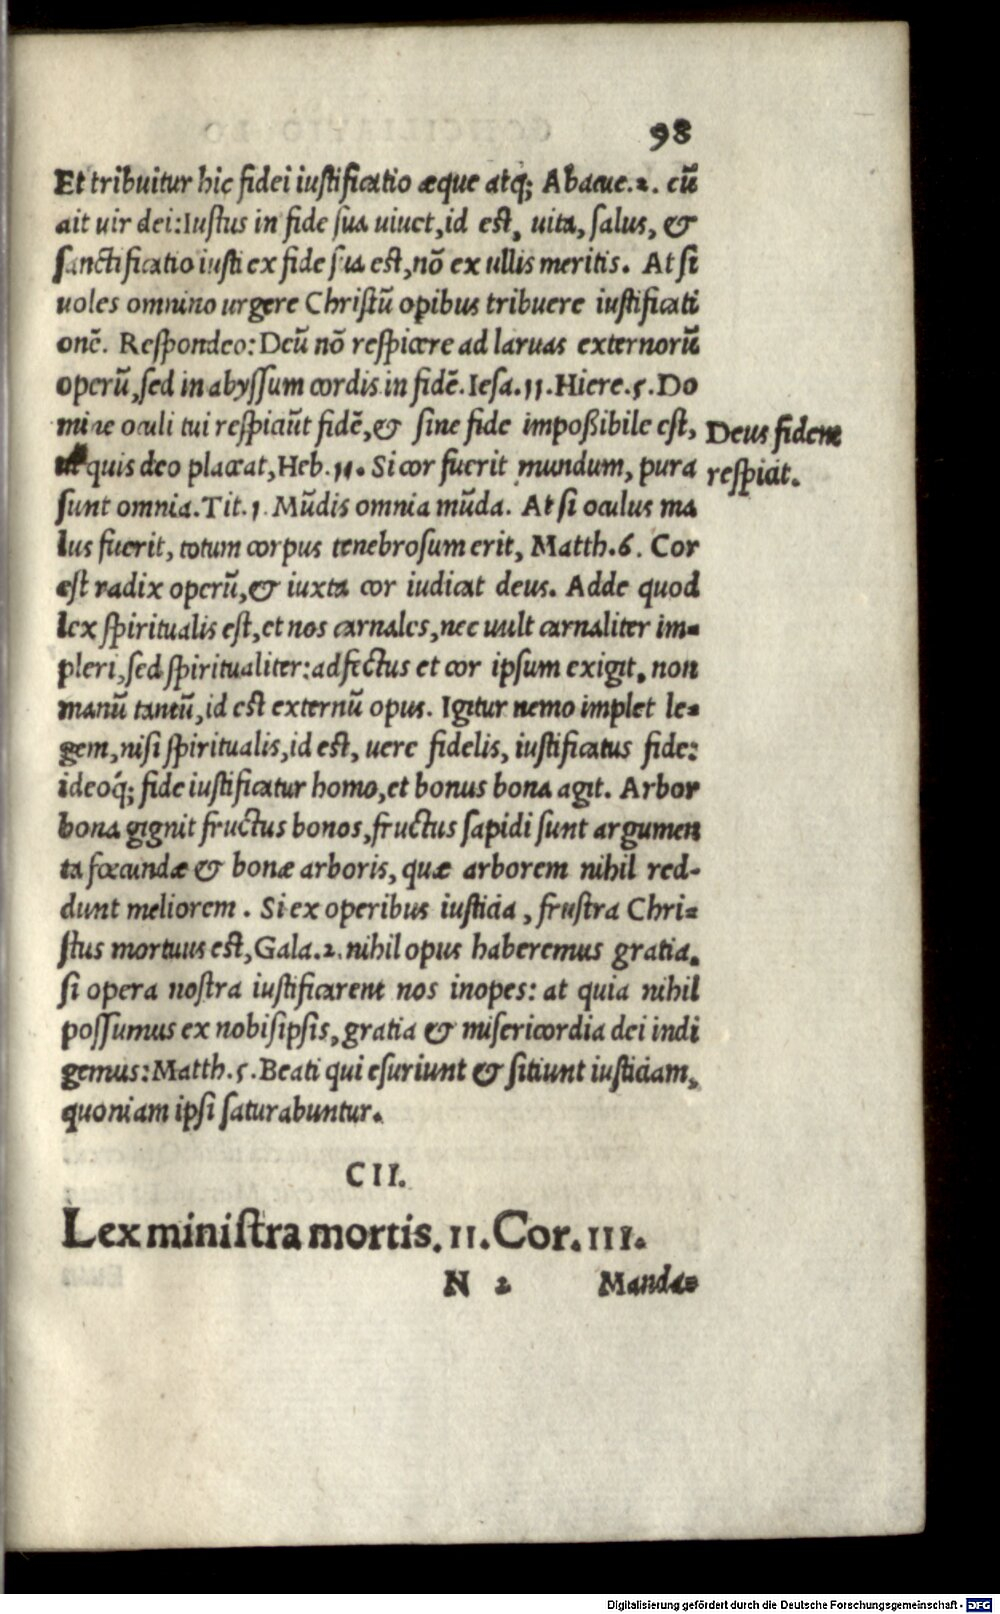 98
Et tribuitur hic fidei iustificatio æque atq; Abacuc.2. cū
ait uir dei: Iustus in fide sua uiuet, id est, uita, salus, &
sanctificatio iusti ex fide sua est, nō ex ullis meritis. At si
uoles omnino urgere Christū opibus tribuere iustificati
onē. Respondeo: Deū nō respicere ad laruas externorū
operū, sed in abyssum cordis in fidē. Iesa.11. Hiere.5. Do
mine oculi tui respiciūt fidē, & sine fide impoßibile est,
quis deo placeat, Heb.11. Si cor fuerit mundum, pura
sunt omnia. Tit.1. Mūdis omnia mūda. At si oculus ma
lus fuerit, totum corpus tenebrosum erit, Matth.6. Cor
est radix operū, & iuxta cor iudicat deus. Adde quod
lex spiritualis est, et nos carnales, nec uult carnaliter im=
pleri, sed spiritualiter: adfectus et cor ipsum exigit, non
manū tantū, id est externū opus. Igitur nemo implet le=
gem, nisi spiritualis, id est, uere fidelis, iustificatus fide:
ideoq́; fide iustificatur homo, et bonus bona agit. Arbor
bona gignit fructus bonos, fructus sapidi sunt argumen
ta fœcundæ & bonæ arboris, quæ arborem nihil red-
dunt meliorem. Si ex operibus iusticia, frustra Chri=
stus mortuus est, Gala.2. nihil opus haberemus gratia,
si opera nostra iustificarent nos inopes: at quia nihil
possumus ex nobisipsis, gratia & misericordia dei indi
gemus: Matth.5. Beati qui esuriunt & sitiunt iusticiam,
quoniam ipsi saturabuntur.
Deus fidem
respicit.
CII.
Lex ministra mortis. II. Cor. III.
N 2 Manda=
Digitalisierung gefördert durch die Deutsche Forschungsgemeinschaft - DFG